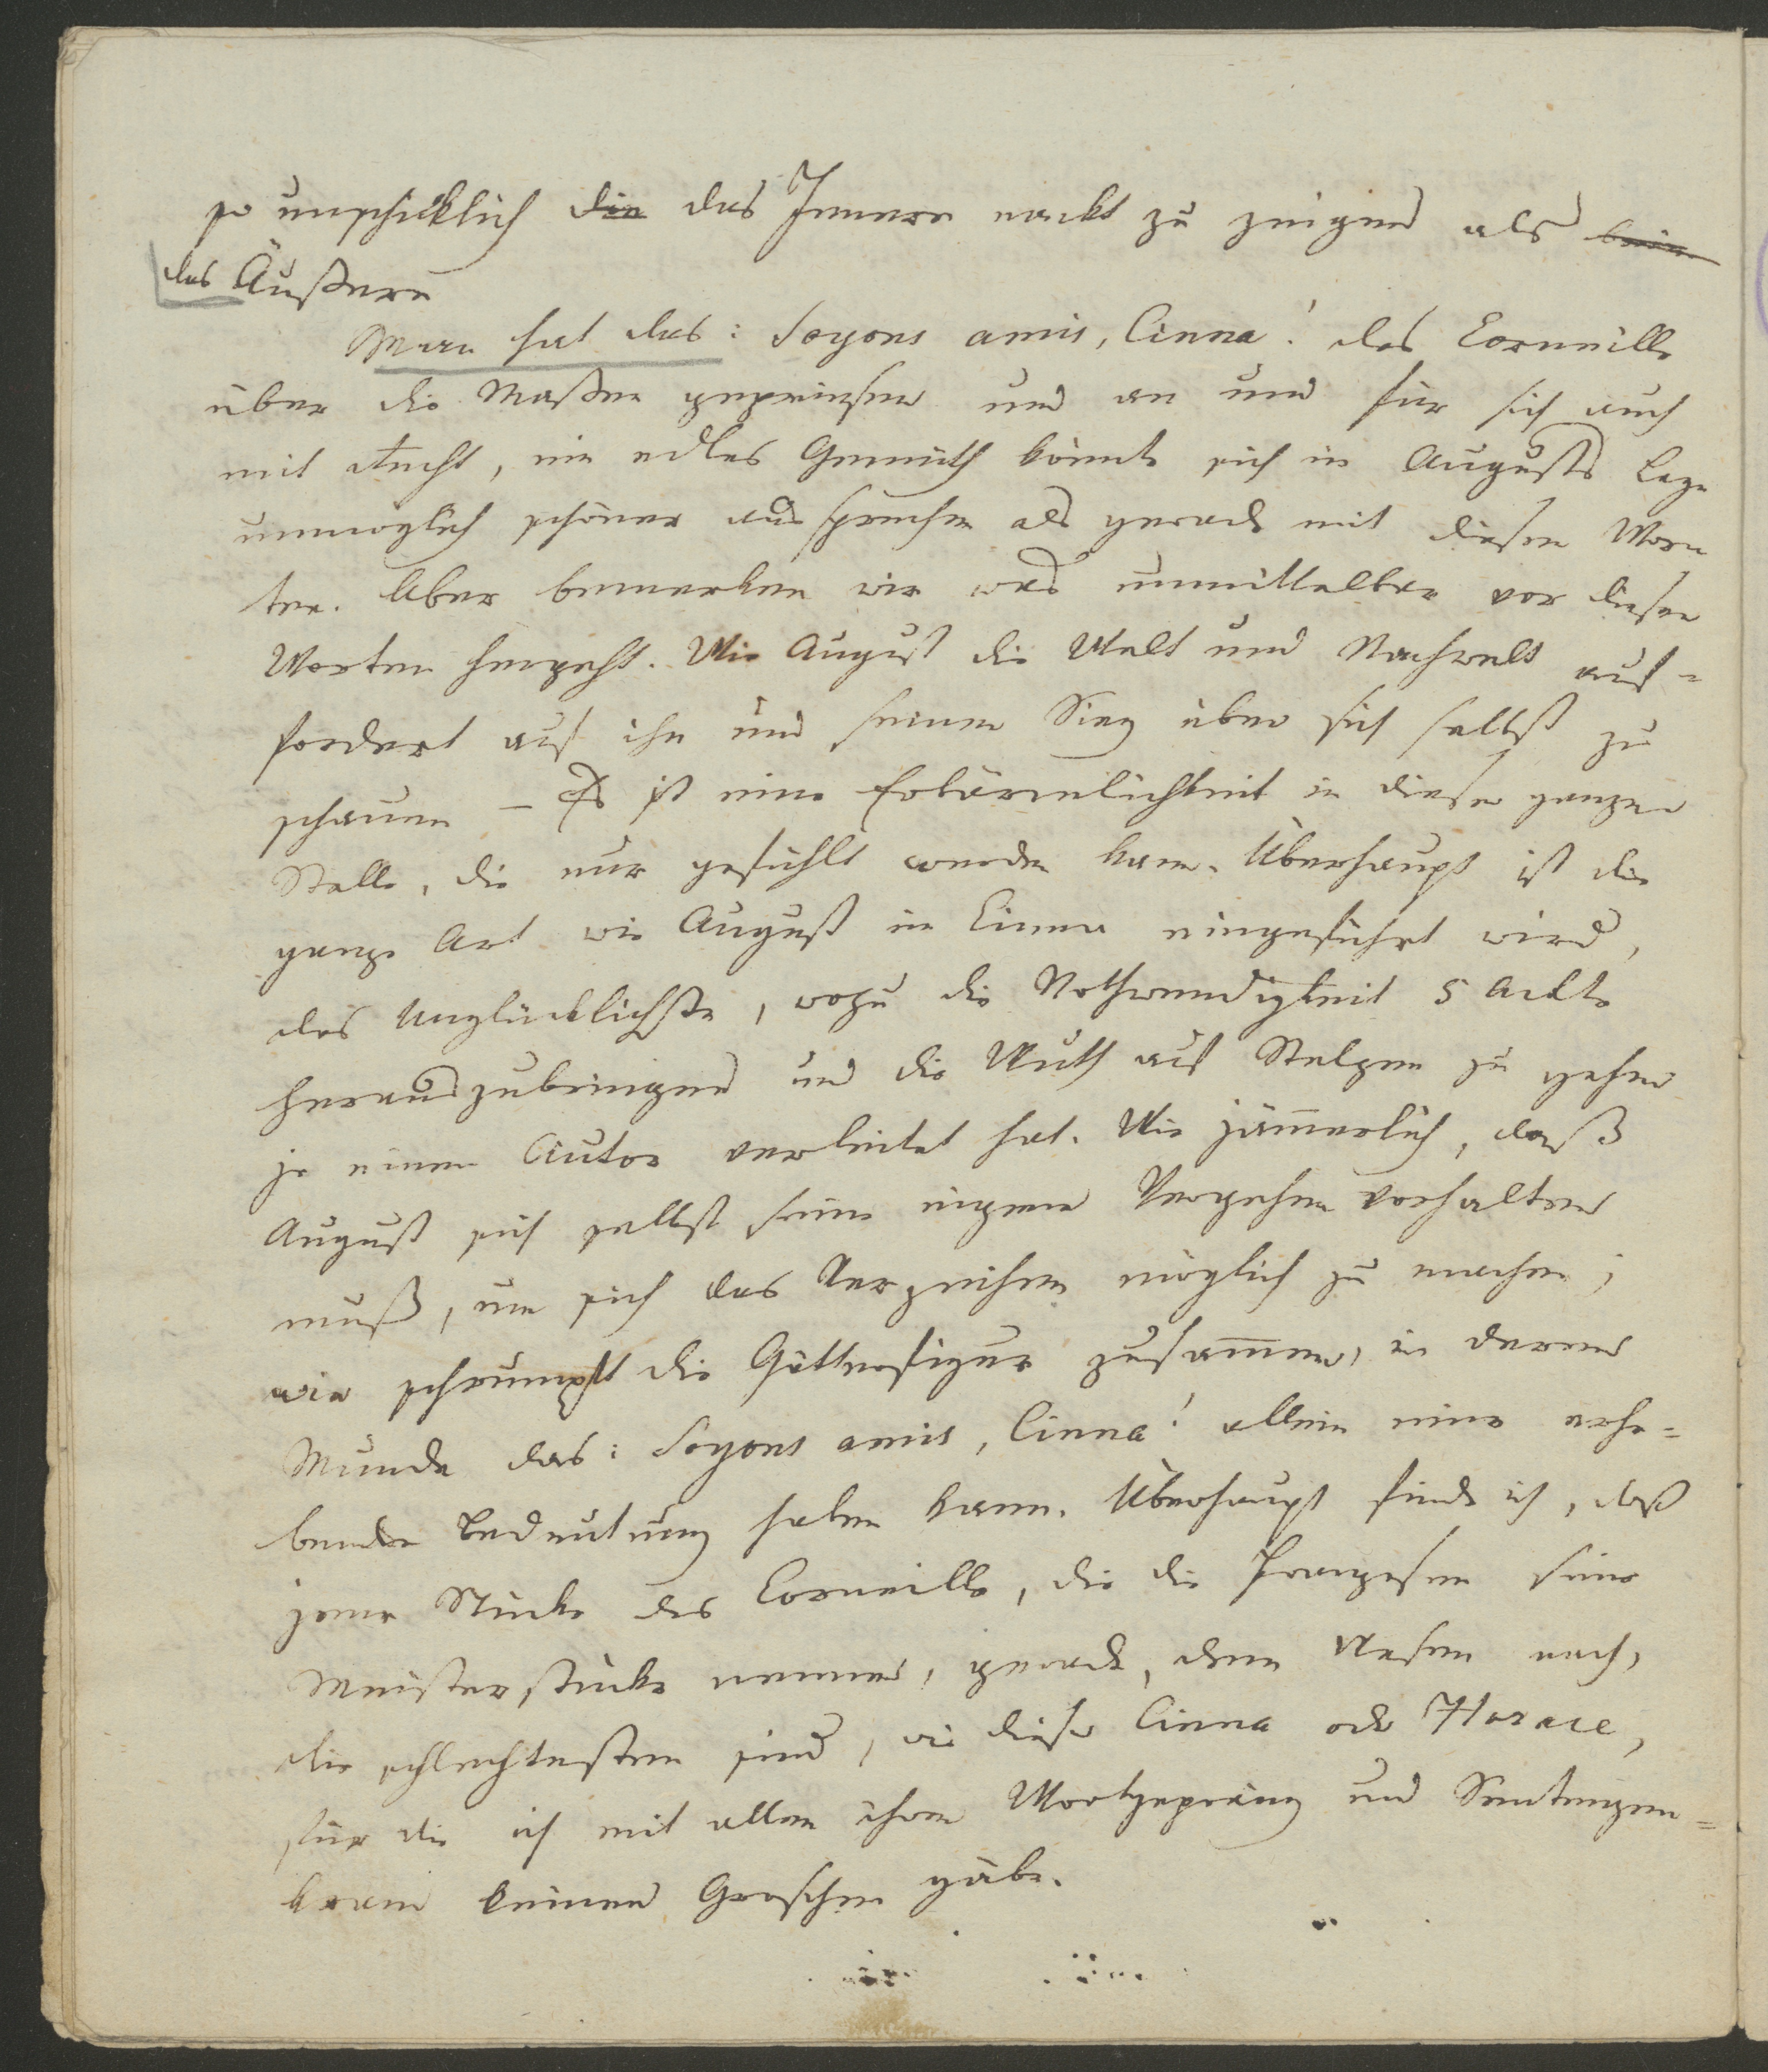 so unschicklich die das Innere nackt zu zeigen als
das Äußere
Man hat das: Soyons amis, Cinna! des Corneille
über die Maßen gepriesen und an und für sich auch
mit Recht, ein edles Gemüth könnte sich in Augusts Lage
unmöglich schöner aussprechen als gerade mit diesen Wor
ten. Aber bemerken wir was unmittelbar vor diesen
Worten hergeht. Wie August die Welt und Nachwelt auf-
fordert auf ihn und seinen Sieg über sich selbst zu
schauen – Es ist eine Erbärmlichkeit in dieser ganzen
Stelle, die nur gefühlt werden kann. Überhaupt ist die
ganze Art wie August in Cinna eingeführt wird,
das Unglücklichste, wozu die Nothwendigkeit 5 Ackte
herauszubringen und die Wuth auf Stelzen zu gehen
je einen Autor verleitet hat. Wie jämerlich, daß
August sich selbst seine eigenen Vergehen vorhalten
muß, um sich das Verzeihen möglich zu machen;
wie schrumpft die Götterfigur zusamen, in deren
Munde das: Soyons amis, Cinna! allein eine erhe-
bende Bedeutung haben kann. Überhaupt finde ich, daß
jene Stücke des Corneille, die die Franzosen seine
Meisterstücke nennen, gerade, dem Wesen nach,
die schlechtesten sind, wie dieser Cinna oder Horace,
für die ich mit allem ihrem Wortgepräng und Sentenzen-
kram keinen Groschen gäbe.